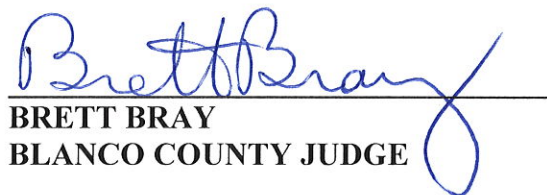 Brett Bray
BRETT BRAY
BLANCO COUNTY JUDGE